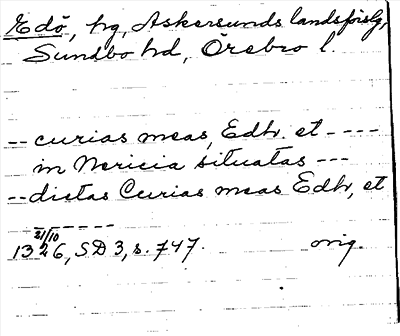 Edö, hg, Askersunds landsförslg,
Sundbo hd, Örebro l.
-- curias meas, Edhr. et ----
in Nericia situatas ---
-- dictas Curias meas Edhr, et
------
21/10
1326, SD 3, s. 747. orig.